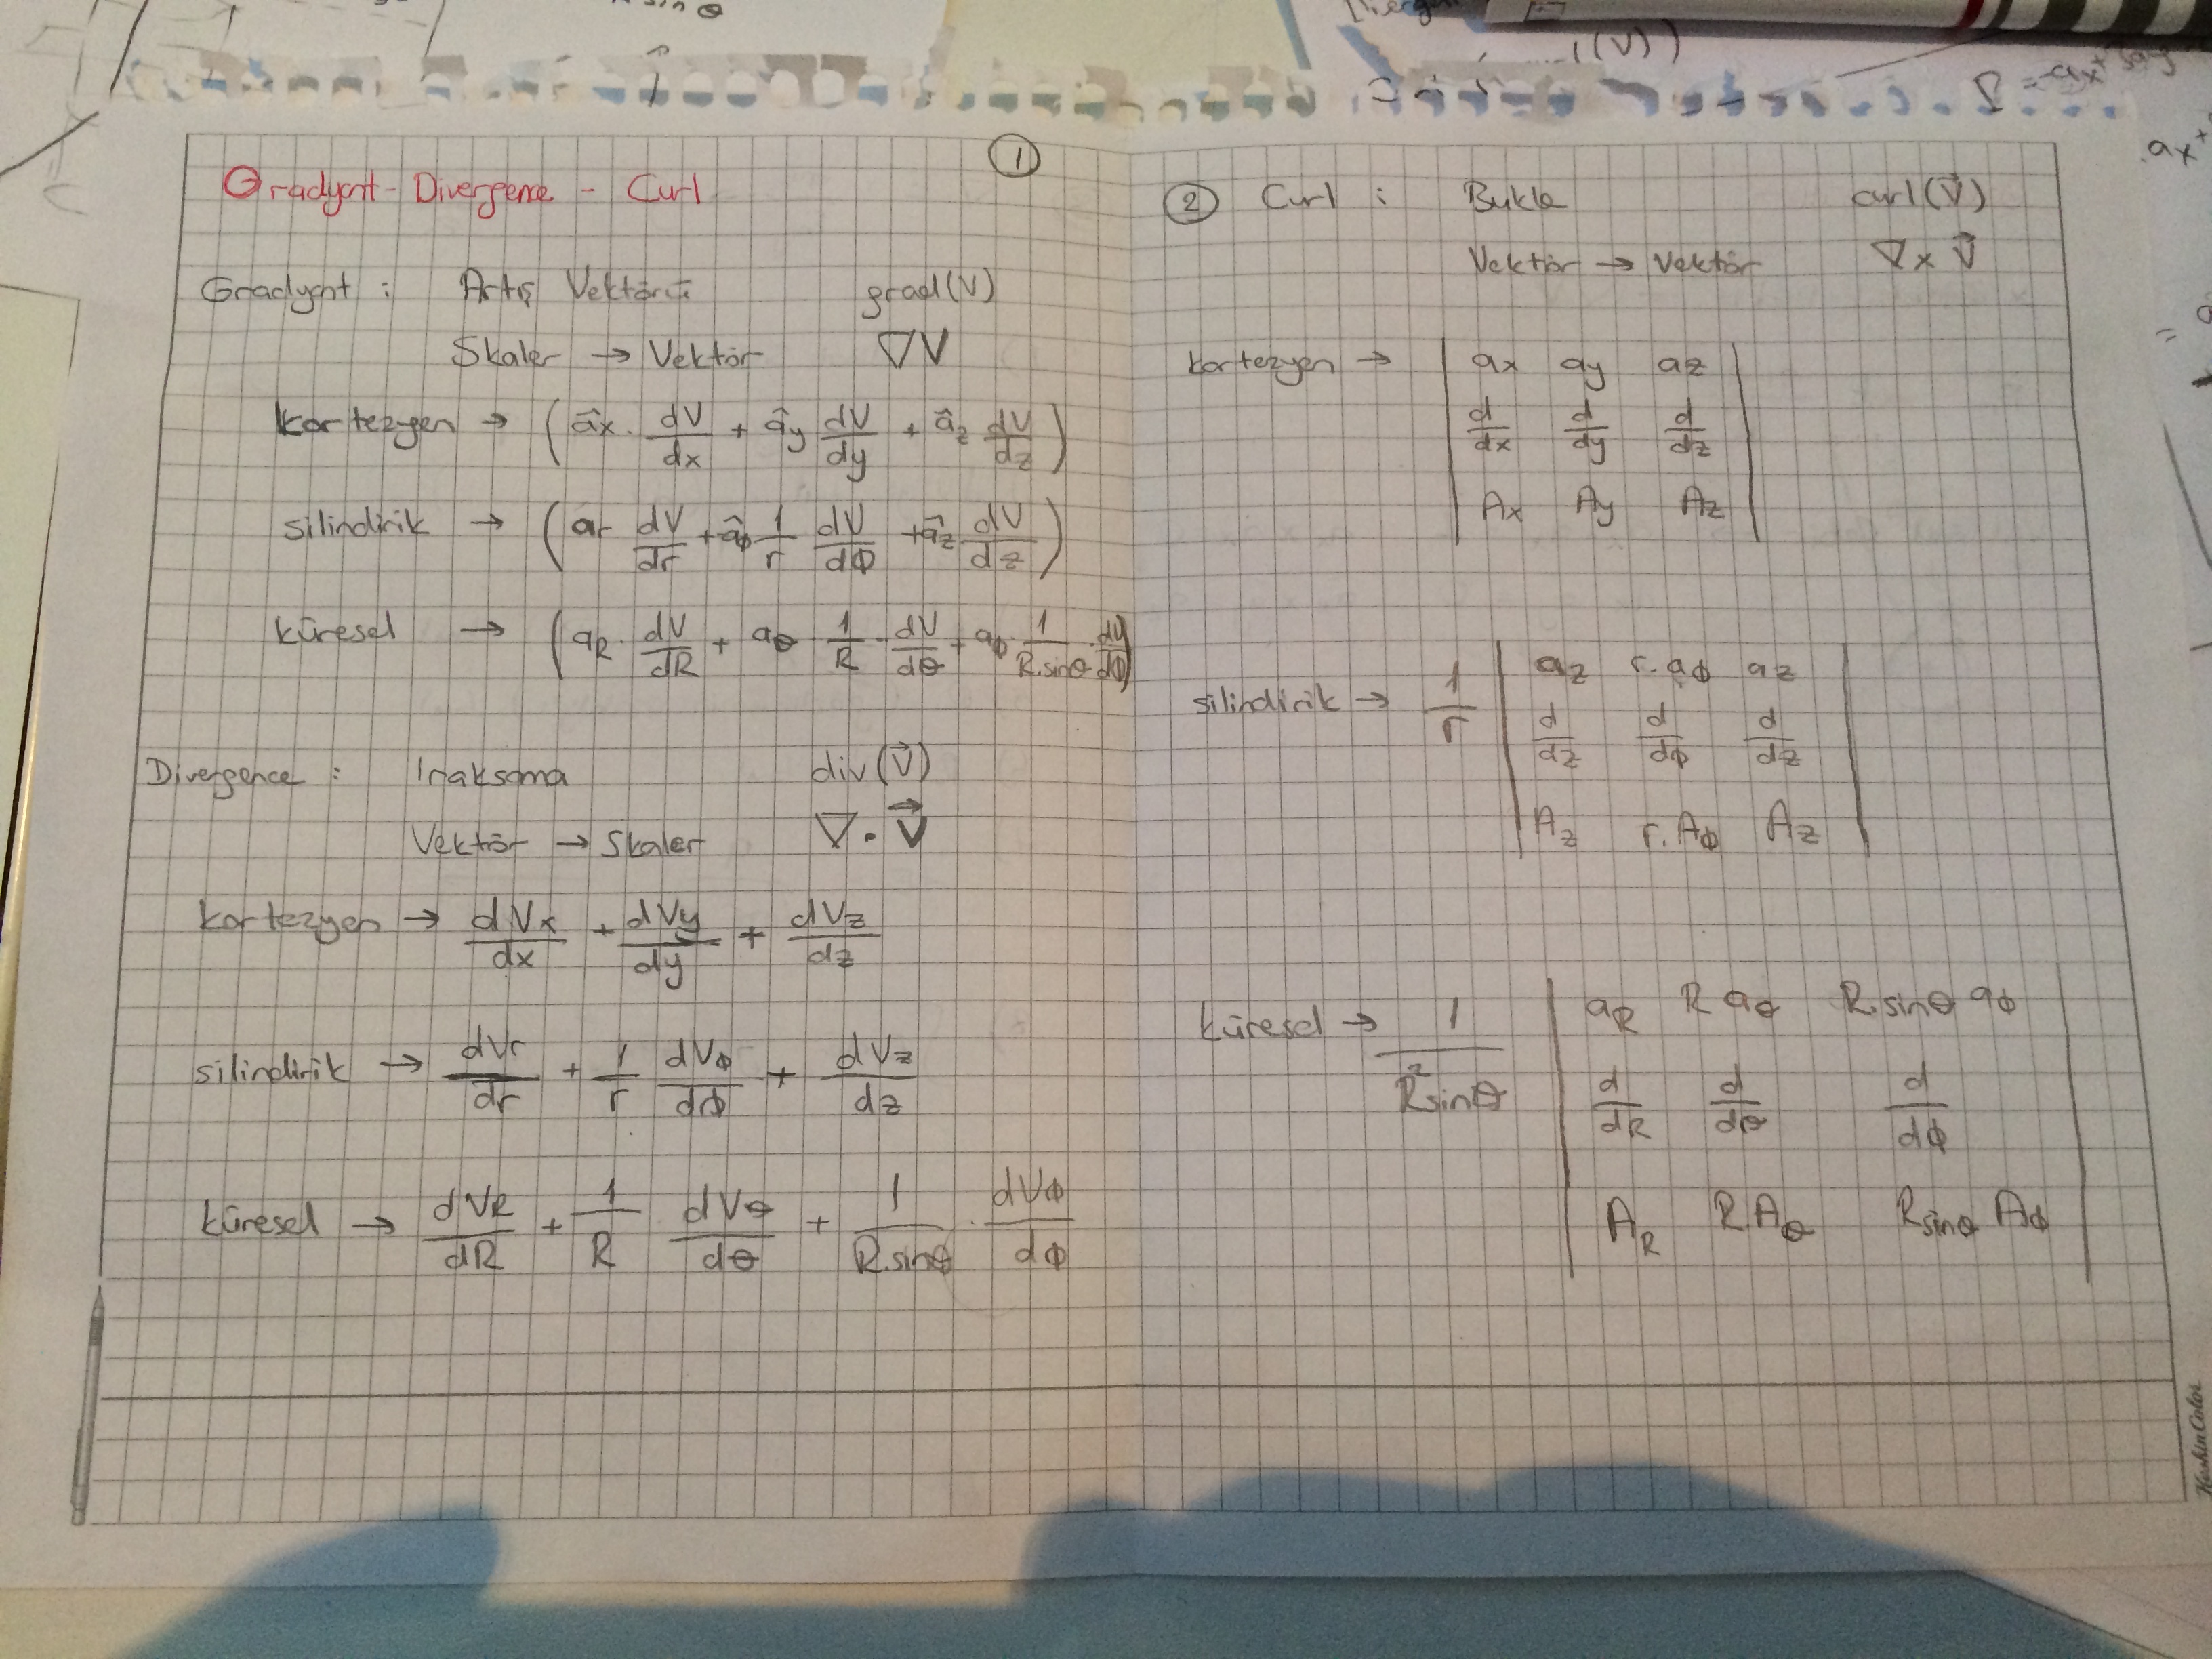 ①
Gradyent - Divergence - Curl
Gradyent : Artış Vektörü grad(V)
Skaler → Vektör ∇V
kartezyen → (âx . dV/dx + ây dV/dy + âz dV/dz)
silindirik → (ar dV/dr + âϕ 1/r dV/dϕ + âz dV/dz)
küresel → (aR . dV/dR + aθ . 1/R . dV/dθ + aϕ . 1/R.sinθ . dV/dϕ)
Divergence : Iraksama div(V⃗)
Vektör → Skaler ∇ . V⃗
kartezyen → dVx/dx + dVy/dy + dVz/dz
silindirik → dVr/dr + 1/r dVϕ/dϕ + dVz/dz
küresel → dVR/dR + 1/R . dVθ/dθ + 1/R.sinθ . dVϕ/dϕ
② Curl : Bukle curl(V⃗)
Vektör → Vektör ∇ x V⃗
kartezyen → | ax ay az |
| d/dx d/dy d/dz |
| Ax Ay Az |
silindirik → 1/r | az r.aϕ az |
| d/dz d/dϕ d/dz |
| Az r.Aϕ Az |
küresel → 1/R²sinθ | aR R aθ R.sinθ aϕ |
| d/dR d/dθ d/dϕ |
| AR R.Aθ Rsinθ Aϕ |
KeskinColor
sin θ
(V))